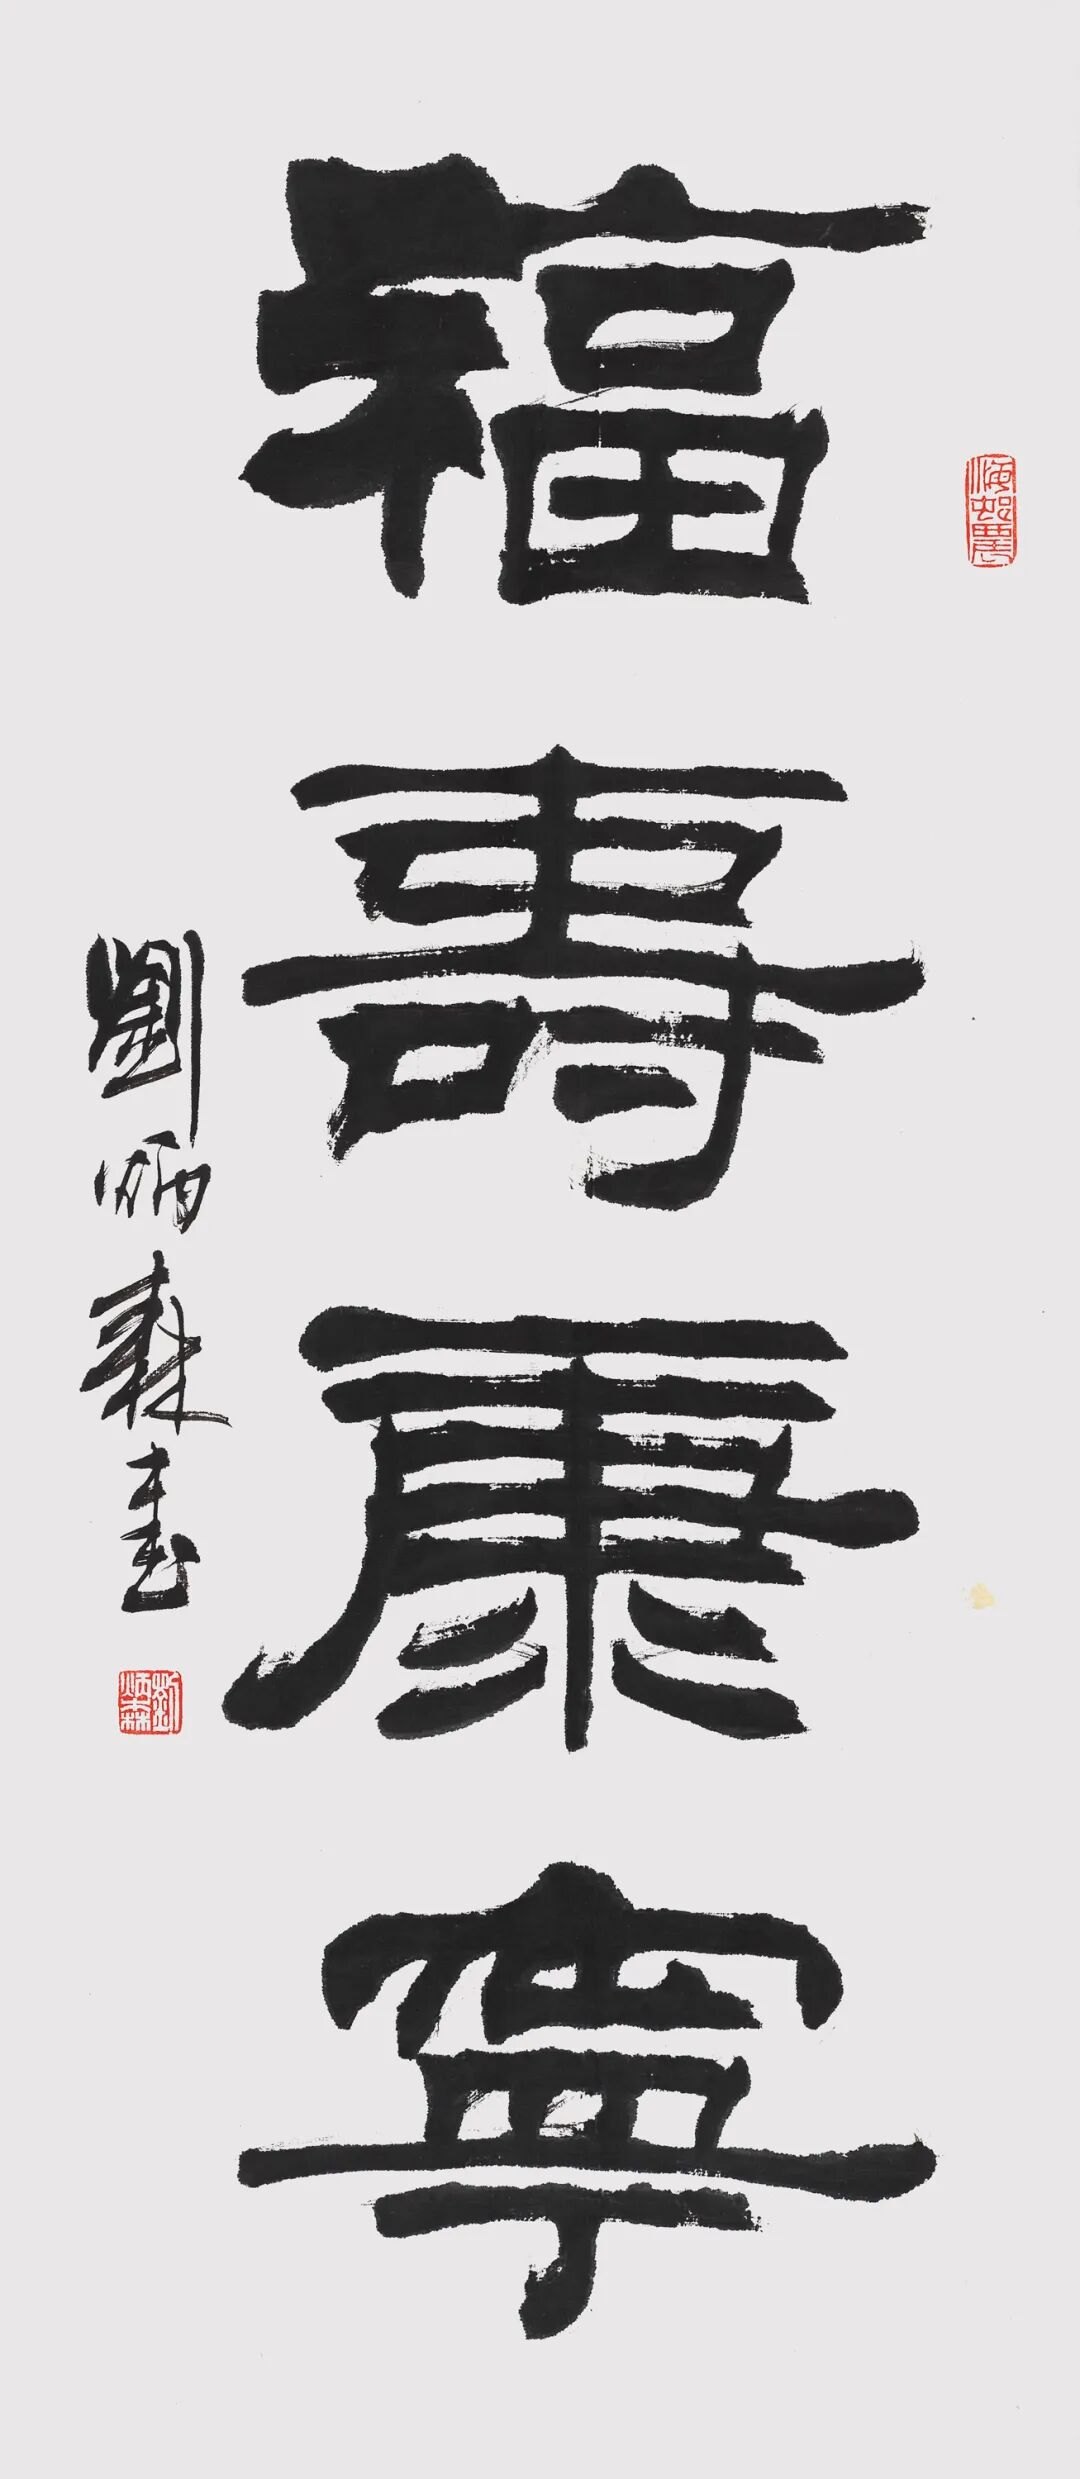 福壽康寧
劉炳森書
劉炳森